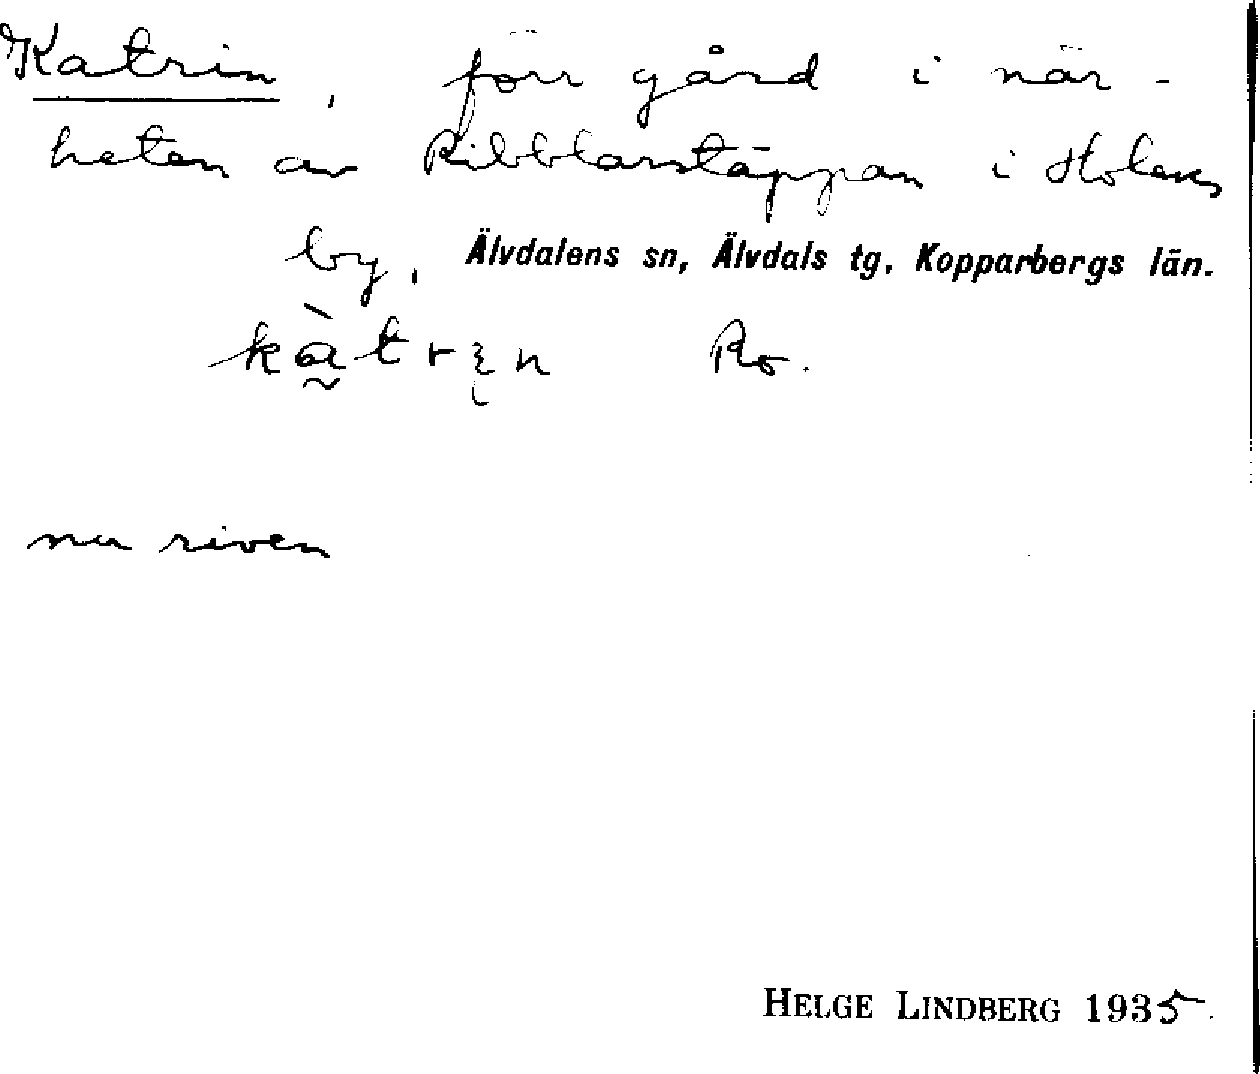 Katrin, förr gård i när-
heten av Ribblarstäppan i Holens
by, Älvdalens sn, Älvdals tg, Kopparbergs län.
kàtrįn Ro.
nu riven
HELGE LINDBERG 1935.